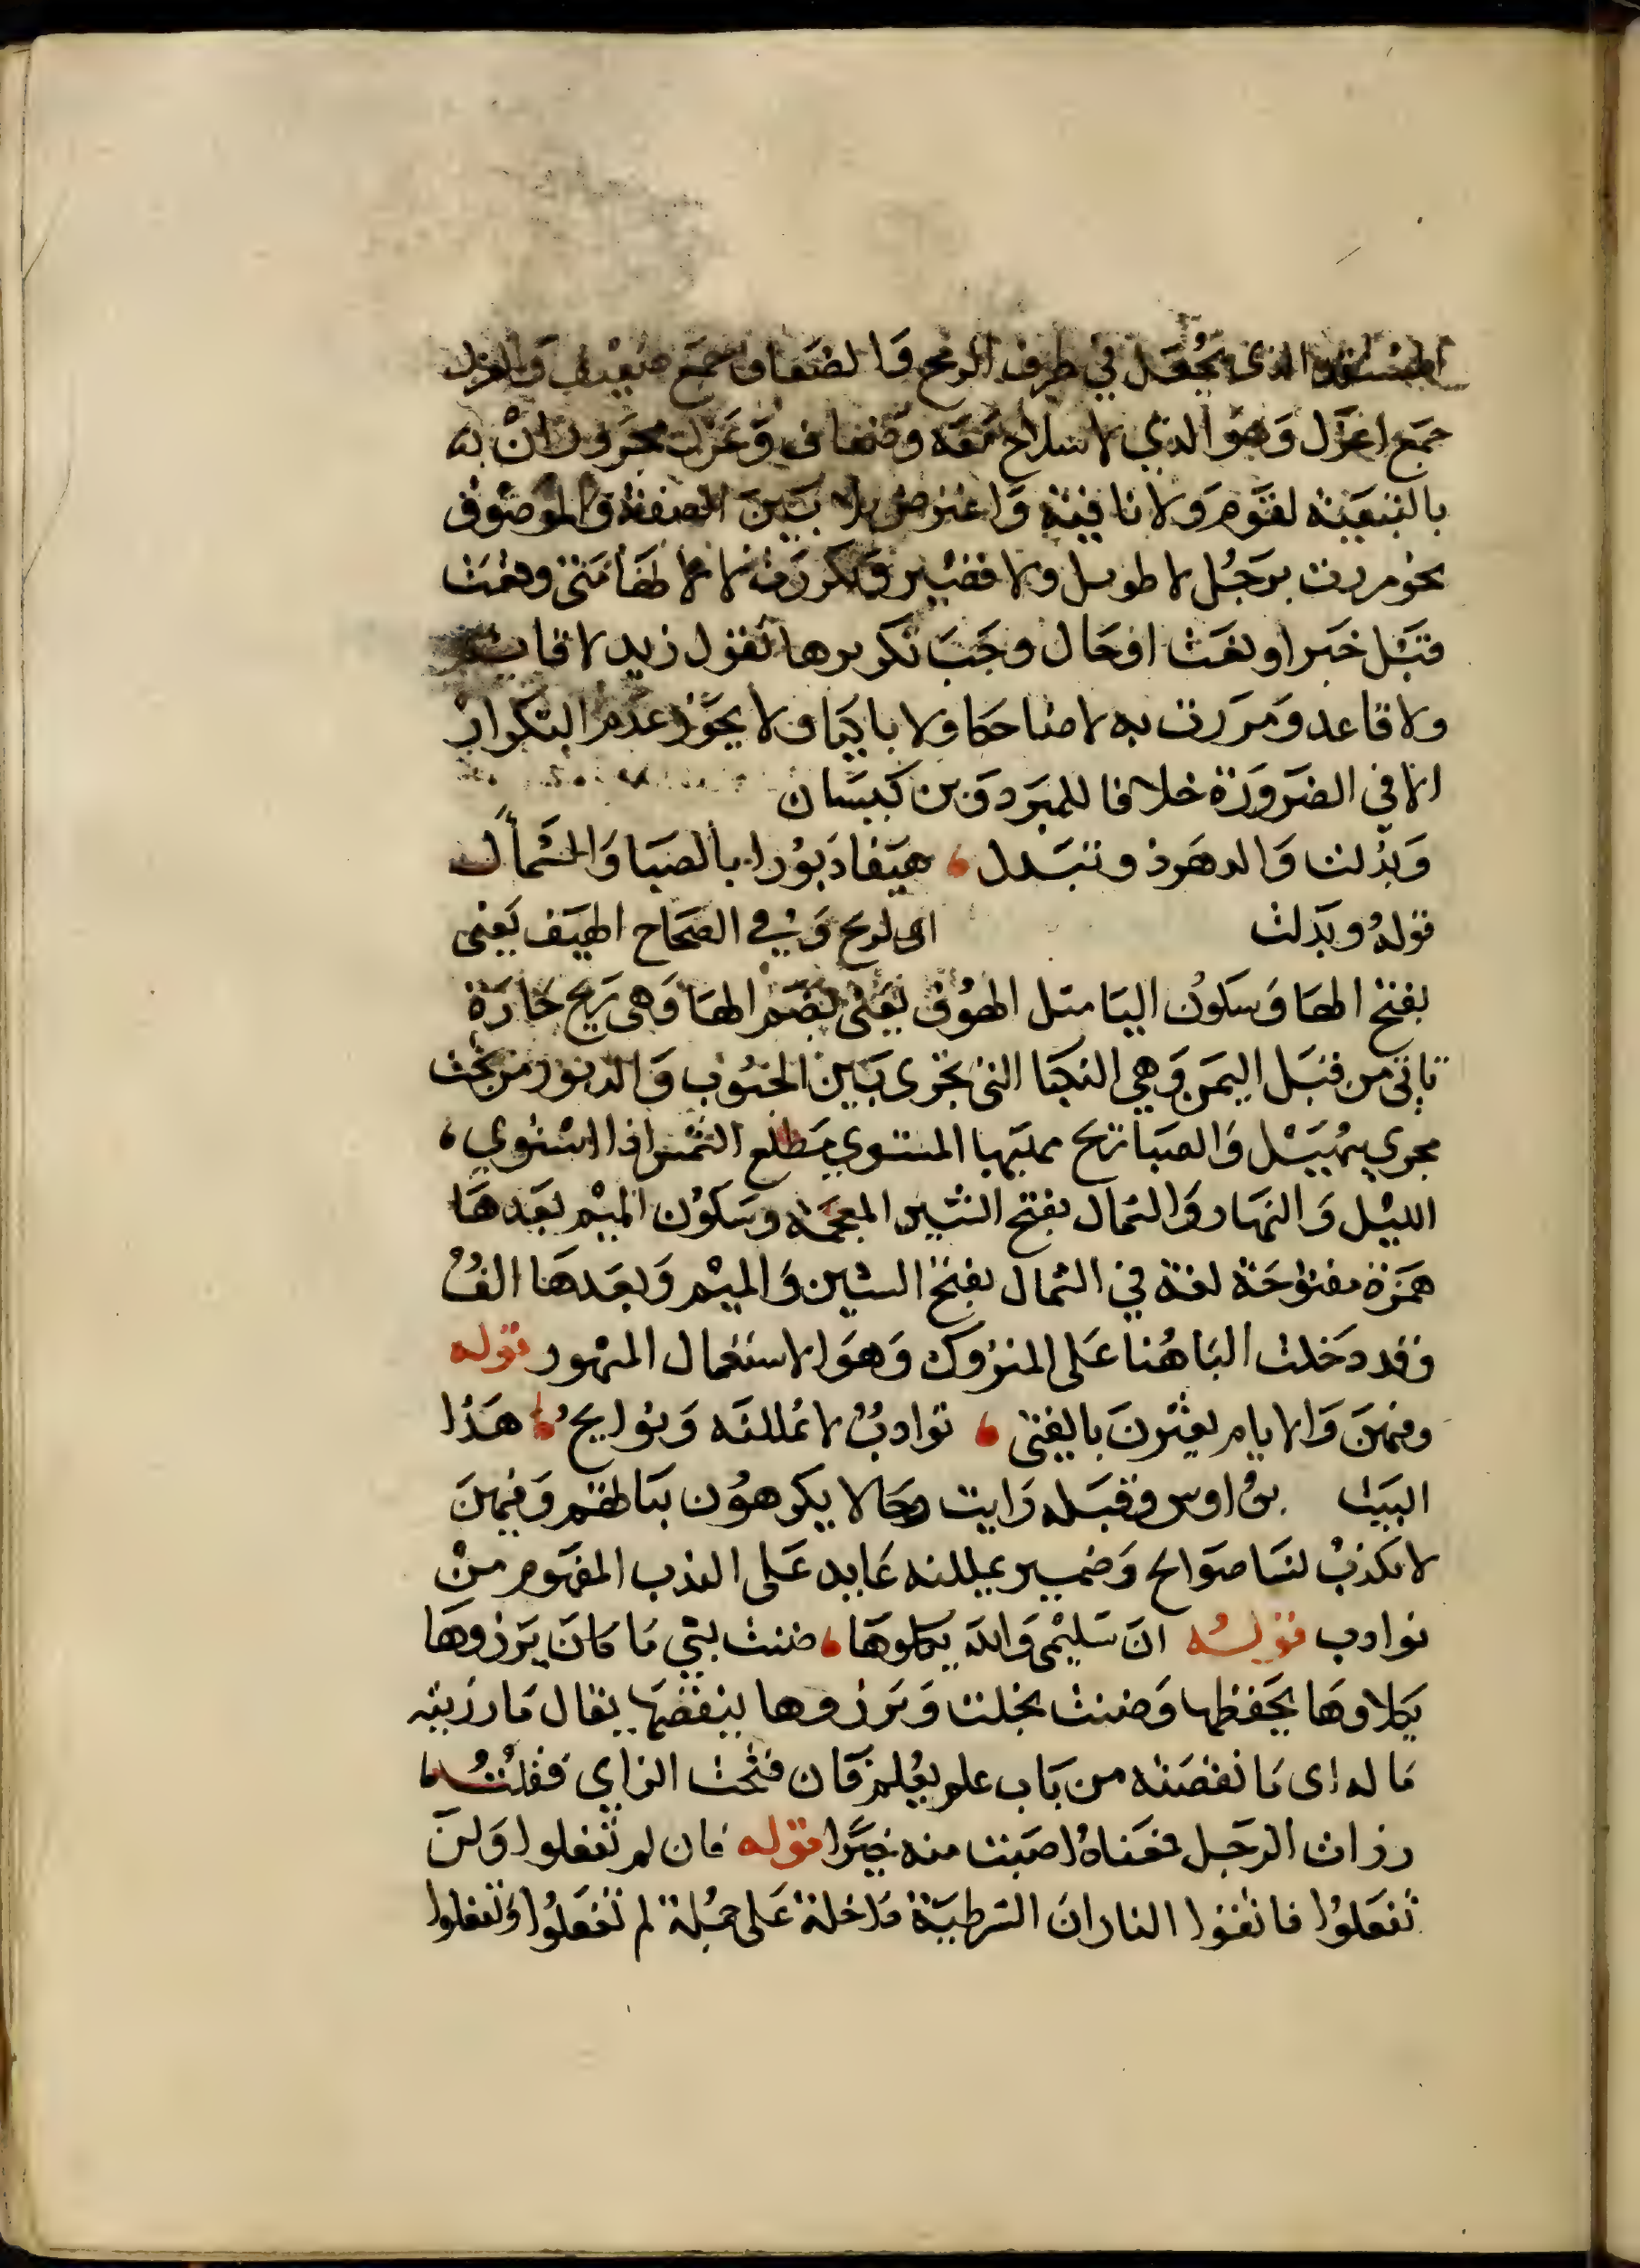 الذى يجعل في طرف الرمح والضعاف جمع ضعيف والعزل
جمع اعزل وهو الذي لا سلاح معه وضعاف وعزل مجروران به
بالتبعية لقوم ولا نافية واعترض بلا بين الصفة والموصوف
نحو مررت برجل لا طويل ولا قصير وتكررت لا لانها متى وقعت
قبل خبر او نعت او حال وجب تكريرها تقول زيد لا قايم
ولا قاعد ومررت به لا ضاحكا ولا باكيا ولا يجوز عدم التكرار
الا في الضرورة خلافا للمبرد وبن كيسان
وبدلت والدهر ذو تبدل ، هيفا دبورا بالصبا والشمأل
قوله وبدلت اى الريح وفي الصحاح الهيف يعنى
بفتح الها وسكون اليا مثل الهوف يعنى بضم الها وهى ريح حارة
تاتى من قبل اليمن وهي النكبا التى تجرى بين الجنوب والدبور من تحت
مجري سهيل والصبا ريح مهبها المستوي مطلع الشمس اذا استوي
الليل والنهار والشمال بفتح الشين المعجمة وسكون الميم بعدها
همزة مفتوحة لغة في الشمال بفتح الشين والميم وبعدها الف
وقد دخلت البا هنا على المتروك وهو الاستعمال المشهور قوله
وفيهن والايام يعثرن بالفتى ، نوادب لا يمللنه ونوايح ، هذا
البيت بن اوس وقبله رايت رجالا يكرهون بناتهم وفيهن
لا تكذب لنسا صوالح وضمير يمللنه عايد على الندب المفهوم من
نوادب قوله ان سليمى والله يكلوها ، ضنت بشي ما كان يرزوها
يكلاوها يحفظها وضنت بخلت ويرزوها ينقصها يقال ما رزيته
ما له اى ما نقصته من باب علم يعلم فان فتحت الزاي فقلت
رزات الرجل فمعناه اصبت منه خيرا قوله فان لم تفعلوا ولن
تفعلوا فاتقوا النار ان الشرطية داخلة على جملة لم تفعلوا وتفعلوا